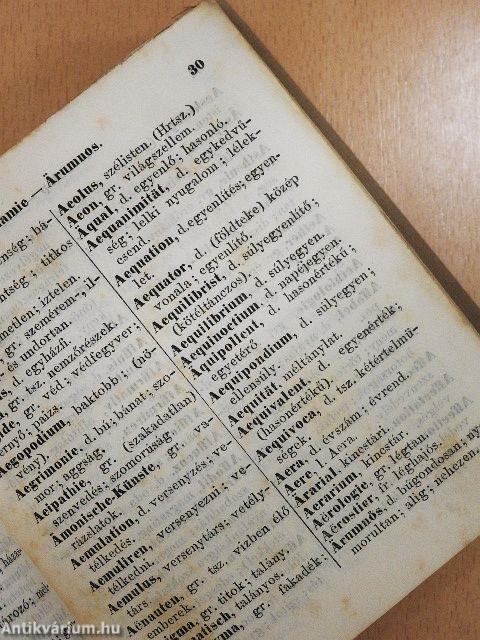 30
amie — Ärumnos.
titkos
iztelen.
gr. szemérem-, il-
és undortan.
d. egyházfi.
gr. tsz. nemzőrészek.
gr. véd; védfegyver;
paizs.
Aegopodium, baktobb; (nö-
rény).
Aegrimonie, d. bú; bánat; szo-
mor; aggság.
Aeipathie, gr. (szakadatlan)
szenvedés; szomoruság.
Ämonische Künste, gr. va-
rázslatok.
Aemulation, d. versenyzés, ve-
télkedés.
Aemuliren, versenyezni; ve-
télkedni.
Aemulus, versenytárs; vetély-
társ.
Aënauten, gr. tsz. vizben élő
emberek.
gr. titok; talány.
talányos.
gr. fakadék.
Aeolus, szélisten. (Hrtsz.)
Aeon, gr. világszellem.
Äqual, d. egyenlő; hasonló.
Aequanimität, d. egykedvü-
ség; lelki nyugalom; lélek-
csend.
Aequation, d. egyenlítés; egyen-
let.
Aequator, d. (földteke) közép
vonala; egyenlítő.
Aequilibrist, d. súlyegyenlítő;
(kötéltánczos).
Aequilibrium, d. súlyegyen.
Aequinoctium, d. napéjegyen.
Aequipollent, d. hasonértékü;
egyetérő.
Aequipondium, d. súlyegyen;
ellensúly.
Aequität, méltánylat.
Aequivalent, d. egyenérték;
(hasonértékü).
Aequivoca, d. tsz. kétértelmü-
ségek.
Aera, d. évszám; évrend.
Aere, l. Aera.
Ärarial, kincstári.
Aerarium, kincstár.
Aërologie, gr. légtan.
Aërostier, f. léghajós.
Ärumnös, d. búgondosan; nyo-
morultan; alig; nehezen.
Antikvárium.hu